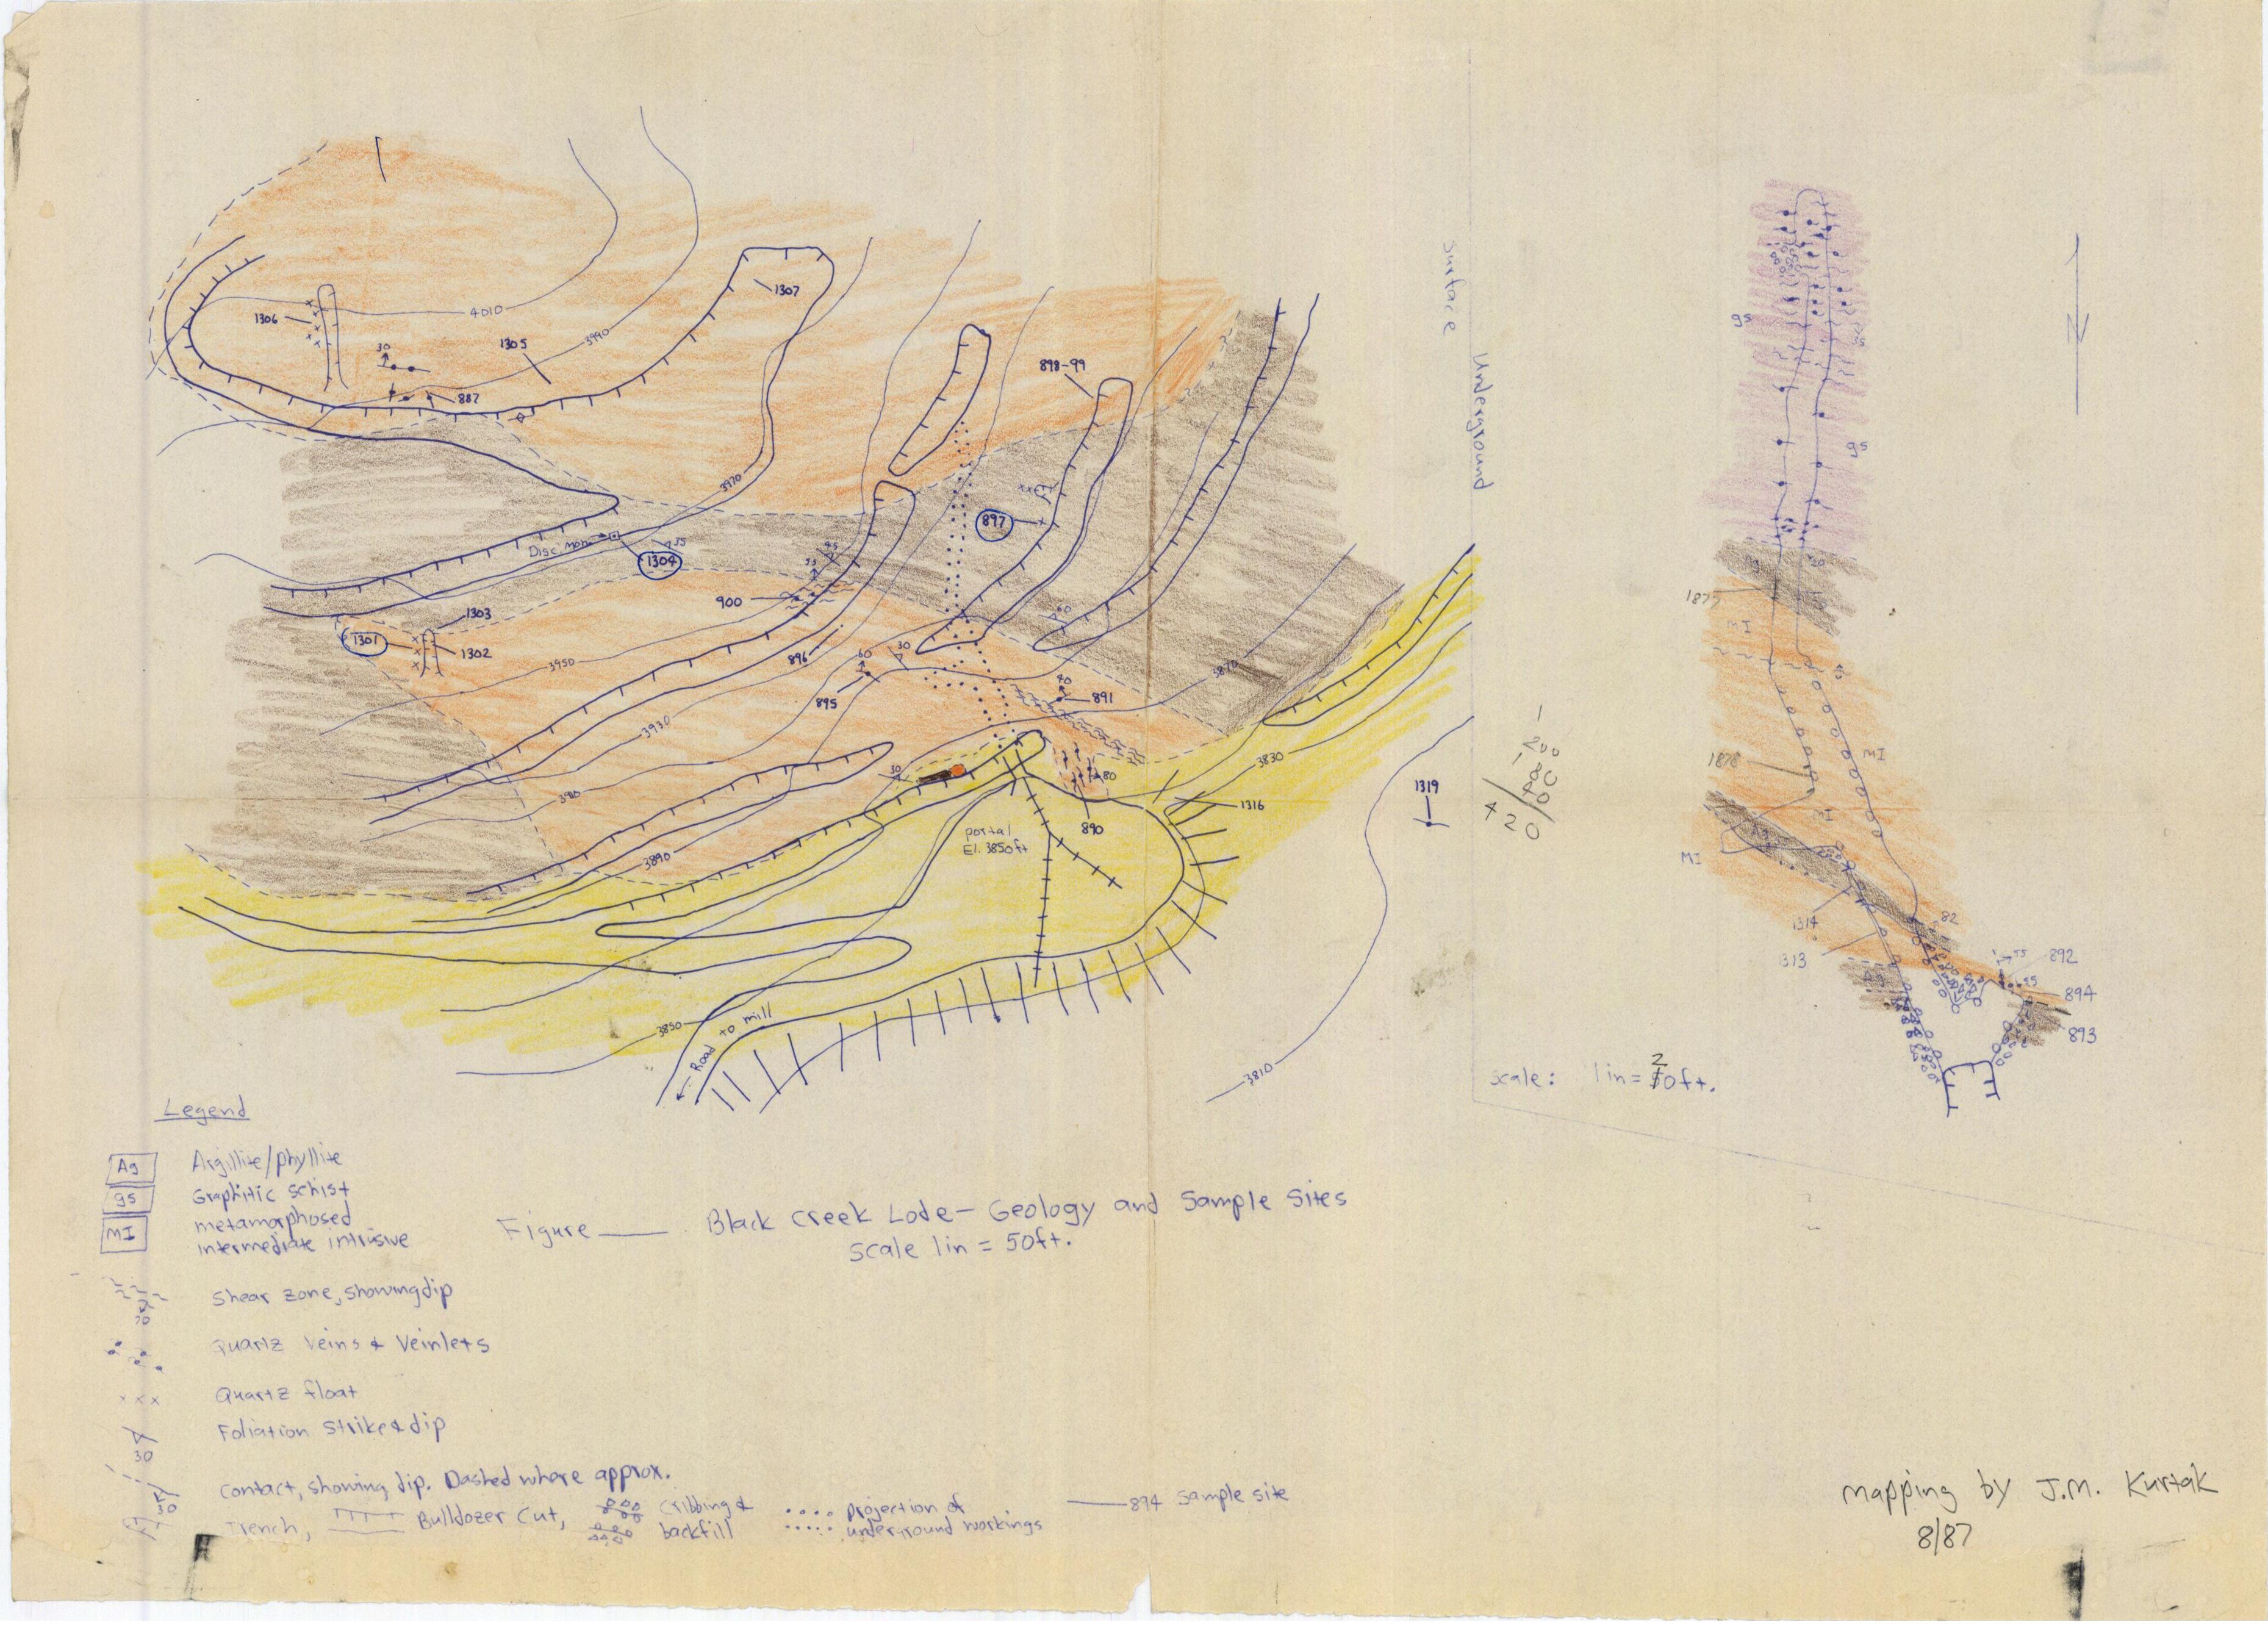 1307
1306
4010
3990
1305
30
887
898-99
3970
897
Disc. Mon.
1304
35
45
55
900
60
1303
1301
1302
3950
896
60
30
895
40
891
3870
3930
30
80
3830
3910
1316
890
1319
portal
El. 3850ft
3890
3850
← Road to mill
3810
Surface
Underground
200
420
scale: 1in = 20ft.
gs
gs
Ag
1875
MI
MI
1878
MI
Ag
MI
1314
1313
82
55
892
55
894
893
N
Legend
Ag Argillite/phyllite
gs Graphitic schist
MI metamorphosed
intermediate intrusive
Figure ___ Black Creek Lode - Geology and Sample Sites
scale 1in = 50ft.
shear zone, showing dip
70
Quartz veins & veinlets
xxx Quartz float
Foliation strike & dip
30
contact, showing dip. Dashed where approx.
30
Trench, Bulldozer cut, cribbing & backfill projection of underground workings 894 sample site
mapping by J.M. Kurtak
8/87